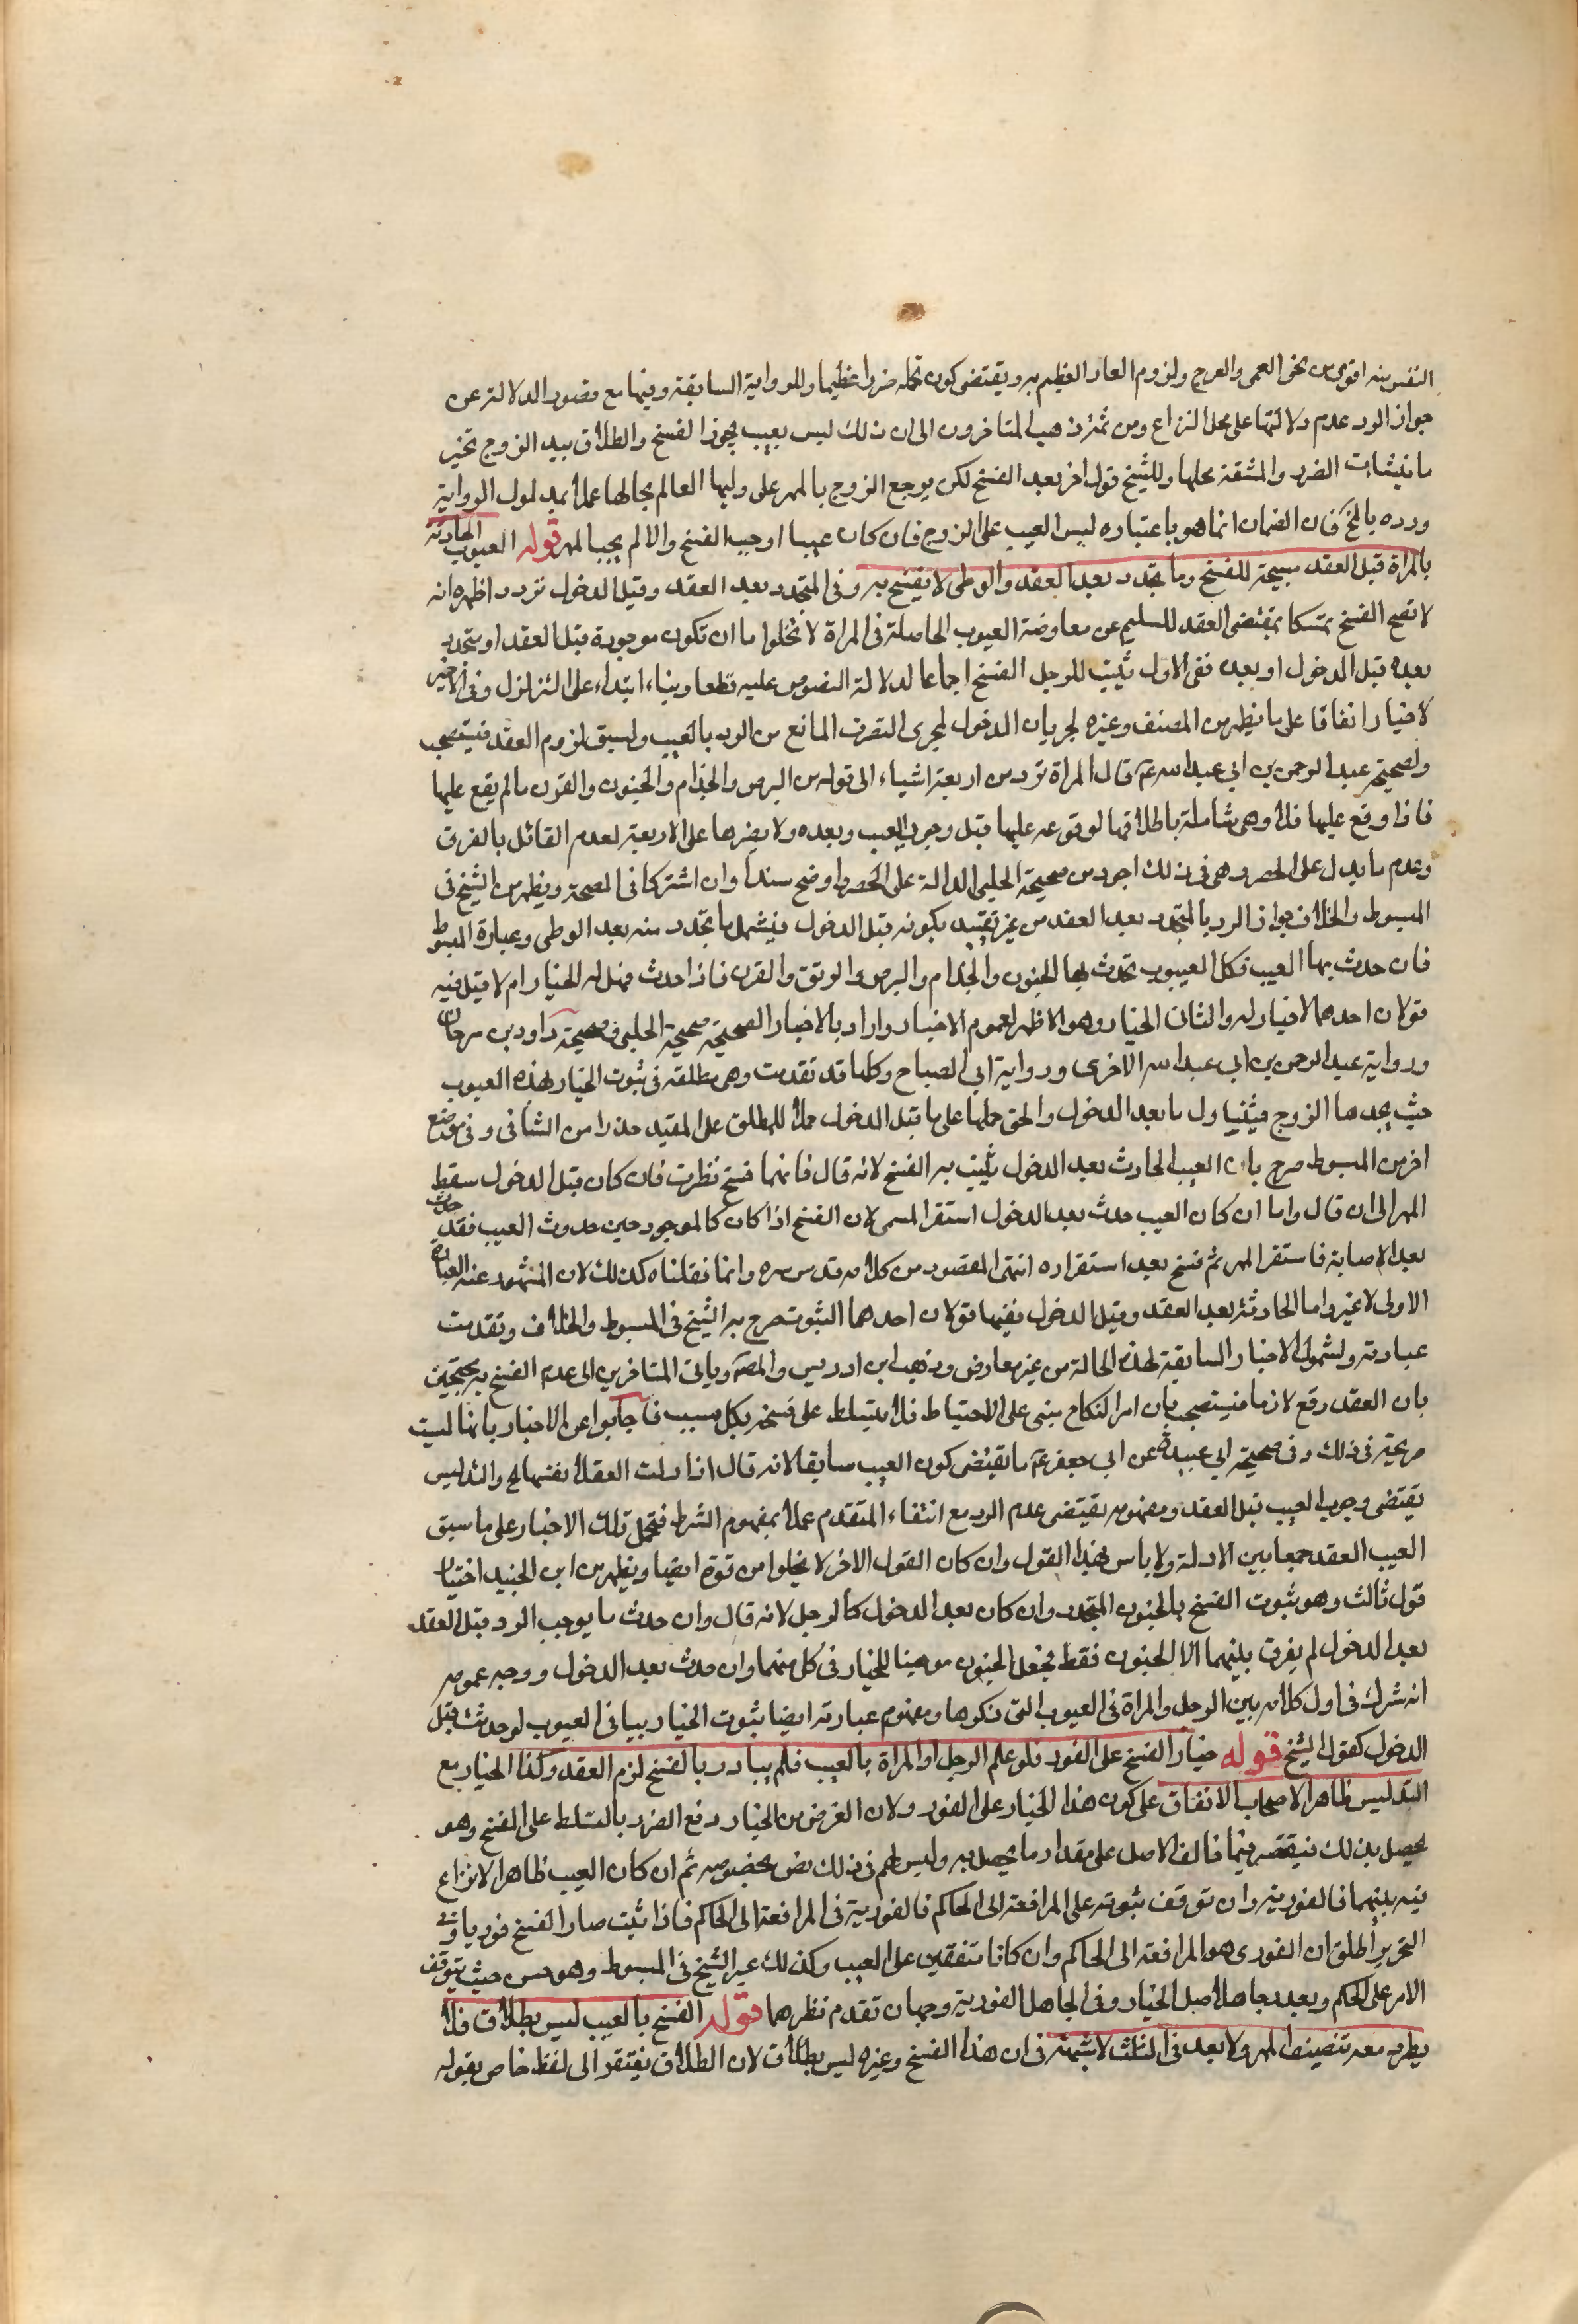 النفس منه اقوى من نحو العمى والعرج ولزوم العار العظيم به ويقتضى كون تحمله ضررا عظيما وللرواية السابقة وفيها مع قصور الدلالة عن
جواز الرد عدم دلالتها على محل النزاع ومن ثمّ ذهب المتاخرون الى ان ذلك ليس بعيب يجوز الفسخ والطلاق بيد الزوج تخير
الضرر والمشقة بحملها وللشيخ قول اخر بعد الفسخ لكن يرجع الزوج بالمهر على وليها العالم بحالها عملا بمدلول الرواية
ورده فان الضمان انما هو باعتباره ليس العيب على الزوج فان كان عيبا اوجب الفسخ والا لم يجب المهر قوله العيوب الحادثة
بالمراة قبل العقد مبيحة للفسخ وما يتجدد بعد العقد والوطى لا يفسخ به وفى المتجدد بعد العقد وقبل الدخول تردد اظهره انه
لا تصح الفسخ تمسكا بمقتضى العقد للسليم عن معارضة العيوب الحاصلة فى المراة لا تخلوا ما ان تكون موجودة قبل العقد او يتجدد
بعده قبل الدخول او بعده ففى الاول ثبت للرجل الفسخ اجماعا لدلالة النصوص عليه قطعا وبناء ابتداء على التزلزل وفى الاخير
لا خيار اتفاقا على ما يظهر من المصنف وغيره لجريان الدخول مجرى التصرف المانع من الرد بالعيب ولسبق لزوم العقد فيستصحب
ولصحيحة عبد الرحمن بن ابى عبد الله عم قال المراة ترد من اربعة اشياء الى قوله من البرص والجذام والجنون والقرن ما لم يقع عليها
فاذا وقع عليها فلا وهى شاملة باطلاقها لوقوعه عليها قبل وجود العيب وبعده ولا يضرها على الاربعة لعدم القائل بالفرق
وعدم ما يدل على الحصر وهى فى ذلك اجود من صحيحة الحلبى الدالة على الحصر واوضح سندا وان اشتركا فى الصحة ويظهر من الشيخ فى
المبسوط والخلاف جواز الرد بالمتجدد بعد العقد من غير تقييد بكونه قبل الدخول فيشمل ما تجدد منه بعد الوطى وعبارة المبسوط
فان حدث بها العيب فكل العيوب تحدث بها الجنون والجذام والبرص والرتق والقرن فاذا حدث فهل له الخيار ام لا قيل فيه
قولان احدهما لا خيار له والثانى الخيار وهو الاظهر لعموم الاخبار واراد بالاخبار الصحيحة صحيحة الحلبى وصحيحة داود بن سرحان
ورواية عبد الرحمن بن ابى عبد الله الاخرى ورواية ابى الصباح وكلها قد تقدمت وهى مطلقة فى ثبوت الخيار بهذه العيوب
حيث يجدها الزوج فيتناول ما بعد الدخول والحق حملها على ما قبل الدخول حملا للمطلق على المقيد حذرا من التنافى وفى موضع
اخر من المبسوط صرح بان العيب الحادث بعد الدخول يثبت به الفسخ لانه قال فانما فسخ نظرت فان كان قبل الدخول سقط
المهر الى ان قال واما ان كان العيب حدث بعد الدخول استقر المسمى لان الفسخ اذا كان كالموجود حين حدوث العيب فقد حدث
بعد الاصابة فاستقر المهر ثم فسخ بعد استقراره انتهى المقصود من كلامه قدس سره وانما نقلناه كذلك لان المشهور عنه العبارة
الاولى لا غير واما الحادثة بعد العقد وقبل الدخول ففيها قولان احدهما الثبوت صرح به الشيخ فى المبسوط والخلاف وتقدمت
عبارته ولشمول الاخبار السابقة لهذه الحالة من غير معارض وذهب ابن ادريس والمصَ وباقى المتاخرين الى عدم الفسخ به محتجين
بان العقد وقع لازما فيستصحب وبان امر النكاح مبنى على الاحتياط فلا يتسلط على فسخه بكل سبب فاجابوا عن الاخبار بانها ليست
صريحة فى ذلك وفى صحيحة ابى عبيدة عن ابى جعفر عم ما يقتضى كون العيب سابقا لانه قال اذا دلست العفلاء نفسها الخ والتدليس
يقتضى وجود العيب قبل العقد ومفهومه يقتضى عدم الرد مع انتفاء المتقدم عملا بمفهوم الشرط فتحمل تلك الاخبار على ما سبق
العيب العقد جمعا بين الادلة ولا باس بهذا القول وان كان القول الاخر لا يخلوا من قوة ايضا ويظهر من ابن الجنيد اختيار
قول ثالث وهو ثبوت الفسخ بالجنون المتجدد وان كان بعد الدخول كالرجل لانه قال وان حدث ما يوجب الرد قبل العقد
بعد الدخول لم يفرق بينهما الا الجنون فقط فجعل الجنون موجبا للخيار فى كل منهما وان حدث بعد الدخول ووجه عمومه
انه شرك فى اول كلامه بين الرجل والمراة فى العيوب التى ذكرها ومفهوم عبارته ايضا ثبوت الخيار بباقى العيوب لو حدثت قبل
الدخول كقول الشيخ قوله خيار الفسخ على الفور فلو علم الرجل او المراة بالعيب فلم يبادر بالفسخ لزم العقد وكذا الخيار مع
التدليس ظاهر الاصحاب الاتفاق على كون هذا الخيار على الفور ولان الغرض من الخيار دفع الضرر بالتسلط على الفسخ وهو
يحصل بذلك فيقتصر فيما خالف الاصل على مقدار ما يحصل به وليس لهم فى ذلك نص بخصوصه ثم ان كان العيب ظاهرا لا نزاع
فيه بينهما فالفورية وان توقف ثبوته على المرافعة الى الحاكم فالفورية فى المرافعة الى الحاكم فاذا ثبت صار الفسخ فوريا وفى
التحرير اطلق ان الفورى هو المرافعة الى الحاكم وان كانا متفقين على العيب وكذلك عبر الشيخ فى المبسوط وهو حسن حيث يتوقف
الامر على الحكم ويعذر جاهل اصل الخيار وفى الجاهل الفورية وجهان تقدم نظرهما قوله الفسخ بالعيب ليس بطلاق فلا
يطرد معه تنصيف المهر ولا يعد فى الثلث لا شبهة فى ان هذا الفسخ وغيره ليس بطلاق لان الطلاق يفتقر الى لفظ خاص بقوله